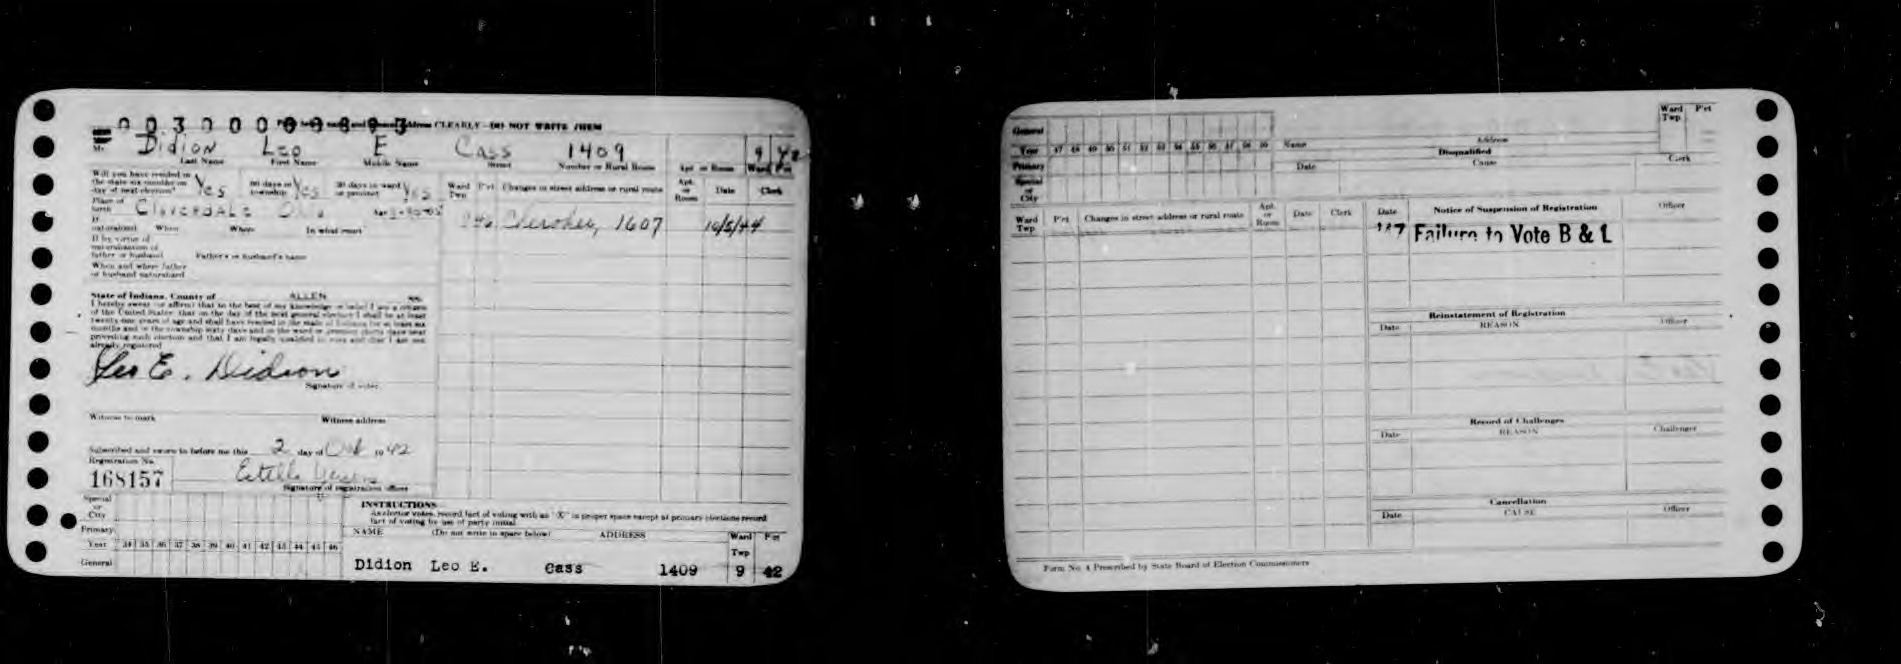 003000000893 CLEARLY - DO NOT WRITE THEM
Mr. Didion Leo E Cass 1409 9 42
Last Name First Name Middle Name Street Number or Rural Route Apt or Room Ward Pct
Will you have resided in
the state six months on
day of next election? Yes 60 days in township Yes 30 days in ward or precinct Yes
Ward Twp P'ct Changes in street address or rural route Apt. or Room Date Clerk
Place of birth Cloverdale Ohio Age
If naturalized When Where In what court
Cherokee, 1607 10/5/44
If by virtue of
naturalization of
father or husband Father's or husband's name
When and where father
or husband naturalized
State of Indiana, County of ALLEN ss.
I hereby swear (or affirm) that to the best of my knowledge or belief I am a citizen
of the United States: that on the day of the next general election I shall be at least
twenty-one years of age and shall have resided in the state of Indiana for at least six
months and in the township sixty days and in the ward or precinct thirty days next
preceding such election and that I am legally qualified to vote and that I am not
already registered
Leo E. Didion
Signature of voter
Witness to mark Witness address
Subscribed and sworn to before me this 2 day of Oct 1942
Registration No.
168157 Estella
Signature of registration officer
Special or City
Primary
Year 34 35 36 37 38 39 40 41 42 43 44 45 46
General
INSTRUCTIONS
As elector votes, record fact of voting with an "X" in proper space except at primary elections record
fact of voting by use of party initial
NAME (Do not write in space below) ADDRESS Ward Twp P'ct
Didion Leo E. Cass 1409 9 42
General
Year 47 48 49 50 51 52 53 54 55 56 57 58 59
Primary
Special or City
Name Address Ward Twp P'ct
Disqualified
Date Cause Clerk
Ward Twp P'ct Changes in street address or rural route Apt. or Room Date Clerk
Date Notice of Suspension of Registration Officer
Failure to Vote B & L
Reinstatement of Registration
Date REASON Officer
Record of Challenges
Date REASON Challenger
Cancellation
Date CAUSE Officer
Form No. 4 Prescribed by State Board of Election Commissioners